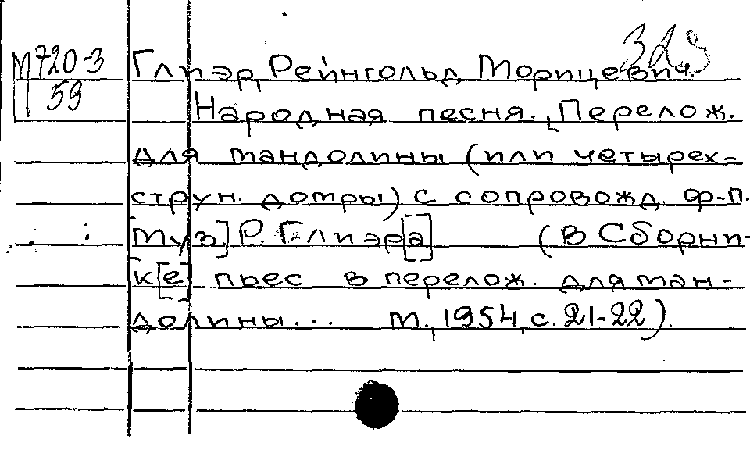 323
М720-3
59
Глиэр, Рейнгольд Морицевич.
Народная песня. [Перелож.
для мандолины (или четырех-
струн. домры) с сопровожд. ф-п.
Муз] Р. Глиэр[а] (В Сборни-
к[е] пьес в перелож. для ман-
долины... М., 1954, с. 21-22).